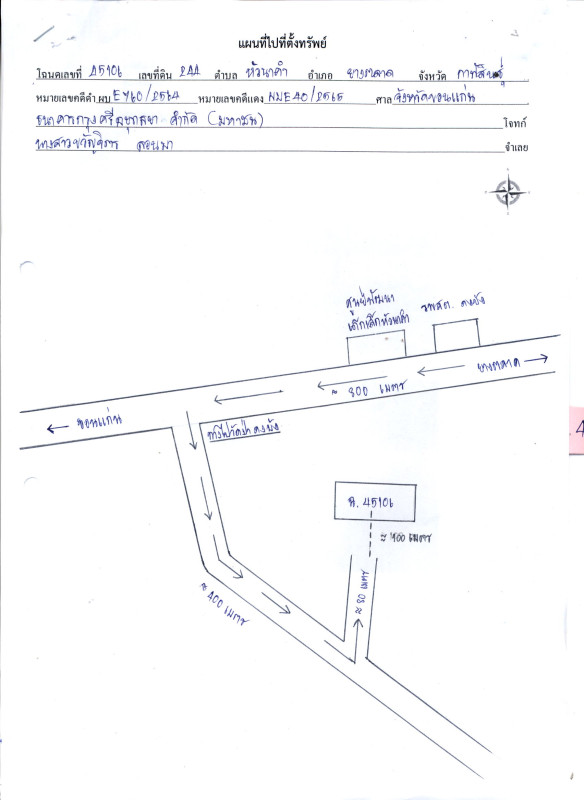 แผนที่ไปที่ตั้งทรัพย์
โฉนดเลขที่ 45106 เลขที่ดิน 244 ตำบล หัวนาคำ อำเภอ ยางตลาด จังหวัด กาฬสินธุ์
หมายเลขคดีดำ ผบ E760/2564 หมายเลขคดีแดง ผบE40/2565 ศาล จังหวัดขอนแก่น
ธนาคารกรุงศรีอยุธยา จำกัด (มหาชน) โจทก์
นางสาวขวัญจิรา ดอนมา จำเลย
ศูนย์พัฒนา
เด็กเล็กหัวนาคำ
รพสต. ดงบัง
ยางตลาด
≈ 800 เมตร
ขอนแก่น
ทางไปวัดป่าดงบัง
ฉ. 45106
≈ 400 เมตร
≈ 80 เมตร
4